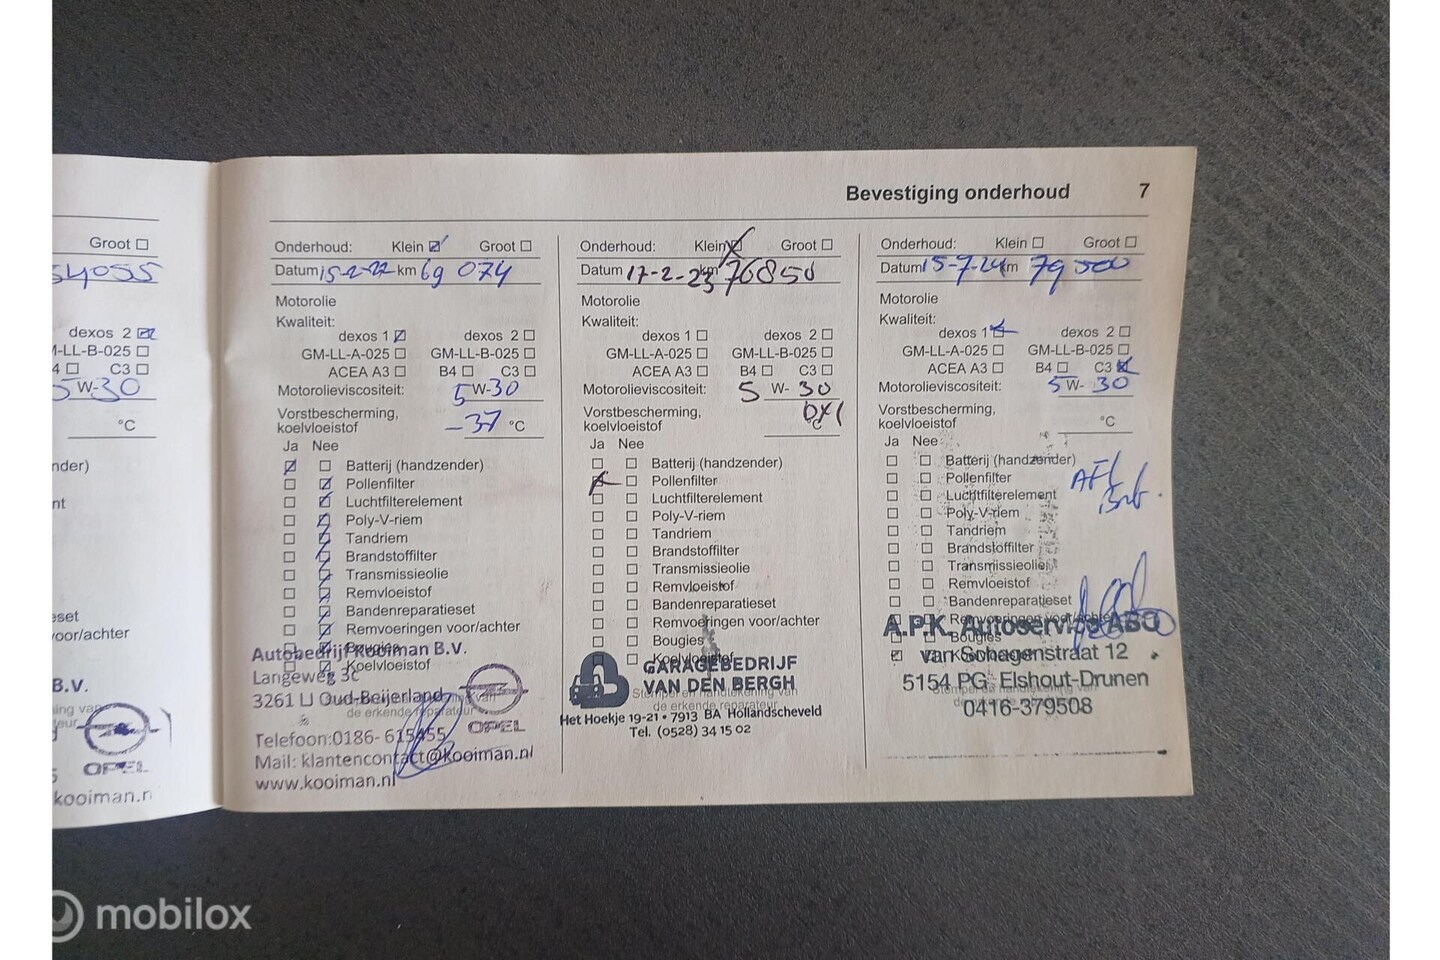 Bevestiging onderhoud 7
Groot
54055
dexos 2
M-LL-B-025
C3
5 W-30
°C
B.V.
OPEL
kooiman.n
Onderhoud: Klein Groot
Datum 15-2-22 km 69 074
Motorolie
Kwaliteit:
dexos 1 dexos 2
GM-LL-A-025 GM-LL-B-025
ACEA A3 B4 C3
Motorolieviscositeit: 5 W-30
Vorstbescherming,
koelvloeistof -37 °C
Ja Nee
Batterij (handzender)
Pollenfilter
Luchtfilterelement
Poly-V-riem
Tandriem
Brandstoffilter
Transmissieolie
Remvloeistof
Bandenreparatieset
Remvoeringen voor/achter
Bougies
Koelvloeistof
Autobedrijf Kooiman B.V.
Langeweg 3c
3261 LJ Oud-Beijerland
de erkende reparateur
OPEL
Telefoon:0186- 615455
Mail: klantencontact@kooiman.nl
www.kooiman.nl
Onderhoud: Klein Groot
Datum 17-2-23 km 76850
Motorolie
Kwaliteit:
dexos 1 dexos 2
GM-LL-A-025 GM-LL-B-025
ACEA A3 B4 C3
Motorolieviscositeit: 5 W- 30
Vorstbescherming, DX1
koelvloeistof °C
Ja Nee
Batterij (handzender)
Pollenfilter
Luchtfilterelement
Poly-V-riem
Tandriem
Brandstoffilter
Transmissieolie
Remvloeistof
Bandenreparatieset
Remvoeringen voor/achter
Bougies
Koelvloeistof
GARAGEBEDRIJF
VAN DEN BERGH
Stempel en handtekening van
de erkende reparateur
Het Hoekje 19-21 • 7913 BA Hollandscheveld
Tel. (0528) 34 15 02
Onderhoud: Klein Groot
Datum 15-7-24 km 79 500
Motorolie
Kwaliteit:
dexos 1 dexos 2
GM-LL-A-025 GM-LL-B-025
ACEA A3 B4 C3
Motorolieviscositeit: 5 W- 30
Vorstbescherming,
koelvloeistof °C
Ja Nee
Batterij (handzender)
Pollenfilter
Luchtfilterelement
Poly-V-riem
Tandriem
Brandstoffilter
Transmissieolie
Remvloeistof
Bandenreparatieset
Remvoeringen voor/achter
A.P.K. Autoservice ABO
Bougies
van Schagenstraat 12
5154 PG Elshout-Drunen
0416-379508
mobilox